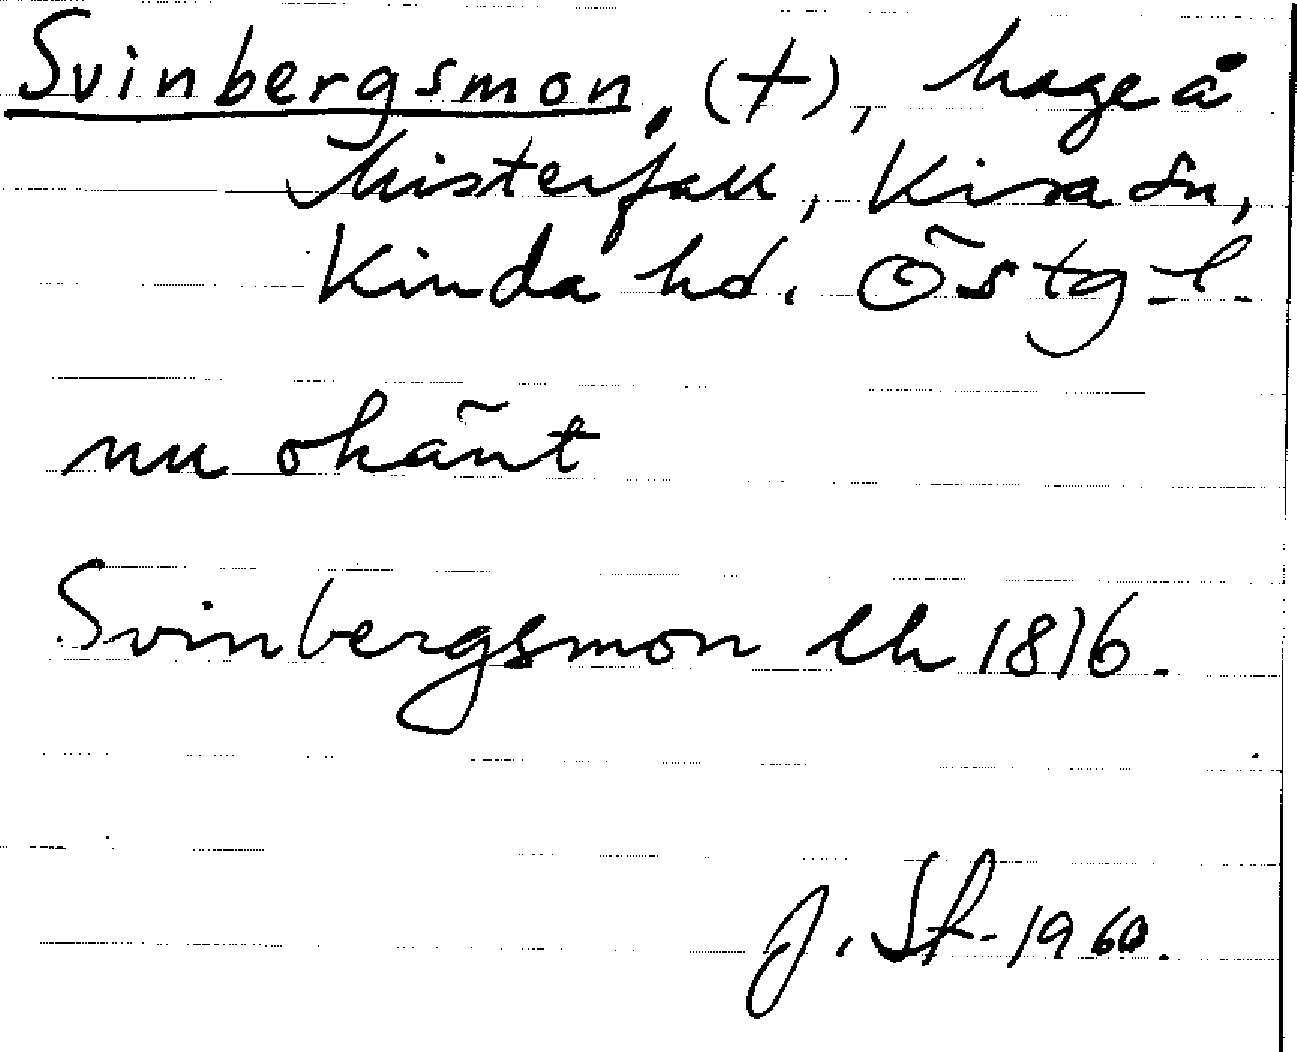 Svinbergsmon, (†), hage å
Misterfall, Kisa sn,
Kinda hd. Östg-l.
nu okänt
Svinbergsmon lh 1816.
J. Sf. 1960.